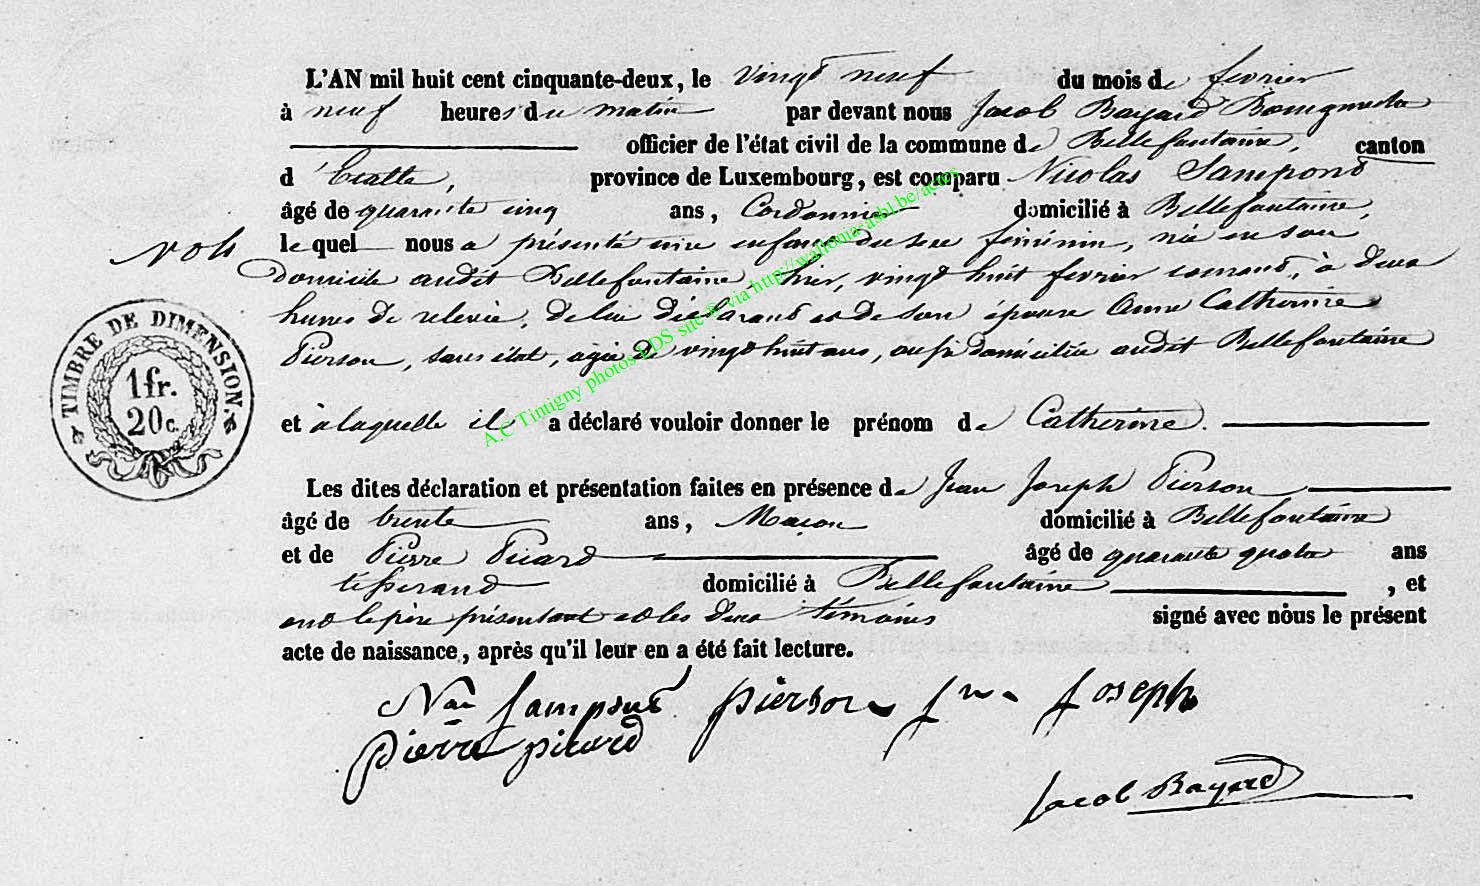 L'AN mil huit cent cinquante-deux, le vingt neuf du mois de fevrier
à neuf heures du matin par devant nous Jacob Bayard Bourgmestre
officier de l'état civil de la commune de Bellefontaine, canton
d'Etalle, province de Luxembourg, est comparu Nicolas Sampont
âgé de quarante cinq ans, Cordonnier domicilié à Bellefontaine,
le quel nous a présenté une enfant du sexe féminin, née en son
domicile audit Bellefontaine, hier, vingt huit fevrier courant, à deux
heures de relevée, de lui déclarant et de son épouse Anne Catherine
Pierson, sans état, agée de vingt huit ans, aussi domiciliée audit Bellefontaine
et à laquelle il a déclaré vouloir donner le prénom de Catherine.
Les dites déclaration et présentation faites en présence de Jean Joseph Pierson
âgé de trente ans, Maçon domicilié à Bellefontaine
et de Pierre Picard âgé de quarante quatre ans
tisserand domicilié à Bellefontaine, et
ont le père présentant et les deux témoins signé avec nous le présent
acte de naissance, après qu'il leur en a été fait lecture.
Nas Sampont pierson jn joseph
pierre picard
Jacob Bayard
TIMBRE DE DIMENSION
1 fr.
20 c.
A.C Tintigny photos LDS site © via http://wallonia-asbl.be/actes